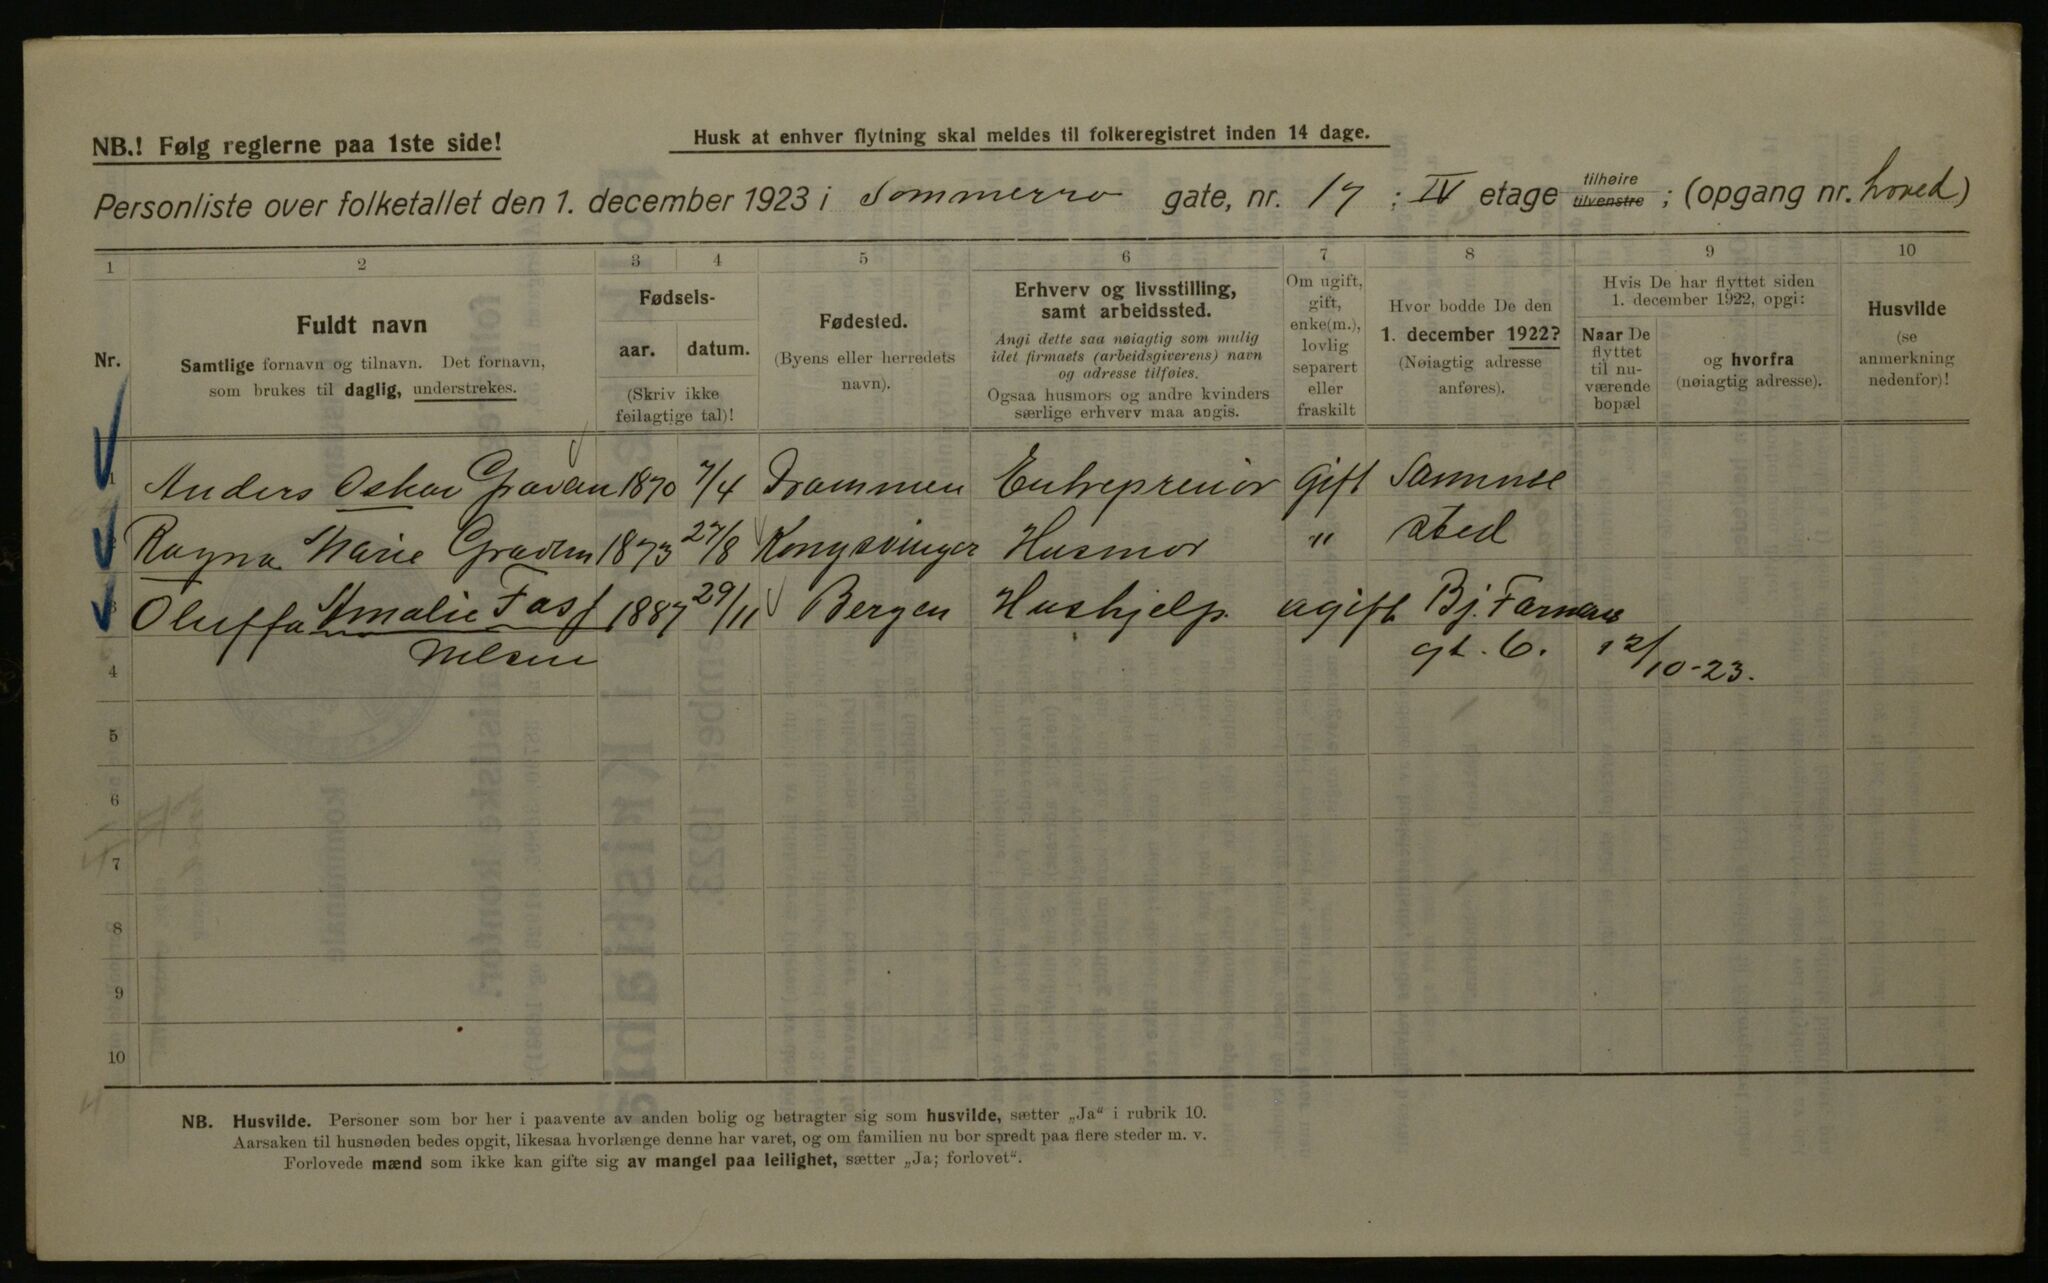 NB.! Følg reglerne paa 1ste side!
Husk at enhver flytning skal meldes til folkeregistret inden 14 dage.
Personliste over folketallet den 1. december 1923 i Sommerro gate, nr. 17 ; IV etage tilhøire tilvenstre ; (opgang nr. hoved)
1 2 3 4 5 6 7 8 9 10
Nr.
Fuldt navn
Samtlige fornavn og tilnavn. Det fornavn,
som brukes til daglig, understrekes.
Fødsels-
aar. datum.
(Skriv ikke
feilagtige tal)!
Fødested.
(Byens eller herredets
navn).
Erhverv og livsstilling,
samt arbeidssted.
Angi dette saa nøiagtig som mulig
idet firmaets (arbeidsgiverens) navn
og adresse tilføies.
Ogsaa husmors og andre kvinders
særlige erhverv maa angis.
Om ugift,
gift,
enke(m.),
lovlig
separert
eller
fraskilt
Hvor bodde De den
1. december 1922?
(Nøiagtig adresse
anføres).
Hvis De har flyttet siden
1. december 1922, opgi:
Naar De
flyttet
til nu-
værende
bopæl
og hvorfra
(nøiagtig adresse).
Husvilde
(se
anmerkning
nedenfor)!
1 Anders Oskar Graven 1870 7/4 Drammen Entreprenör gift Samme
2 Ragna Marie Graven 1873 27/8 Kongsvinger Husmor " sted
3 Oluffa Amalie Fass 1887 29/11 Bergen Hushjelp. ugift Bj. Farmans
4 Nilsen gt. 6. 12/10-23.
5
6
7
8
9
10
NB. Husvilde. Personer som bor her i paavente av anden bolig og betragter sig som husvilde, sætter „Ja“ i rubrik 10.
Aarsaken til husnøden bedes opgit, likesaa hvorlænge denne har varet, og om familien nu bor spredt paa flere steder m. v.
Forlovede mænd som ikke kan gifte sig av mangel paa leilighet, sætter „Ja; forlovet“.